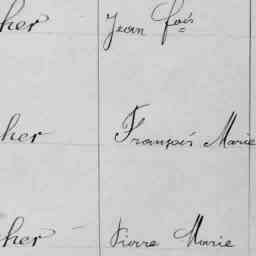 her Jean fois
her François Marie
her Pierre Marie